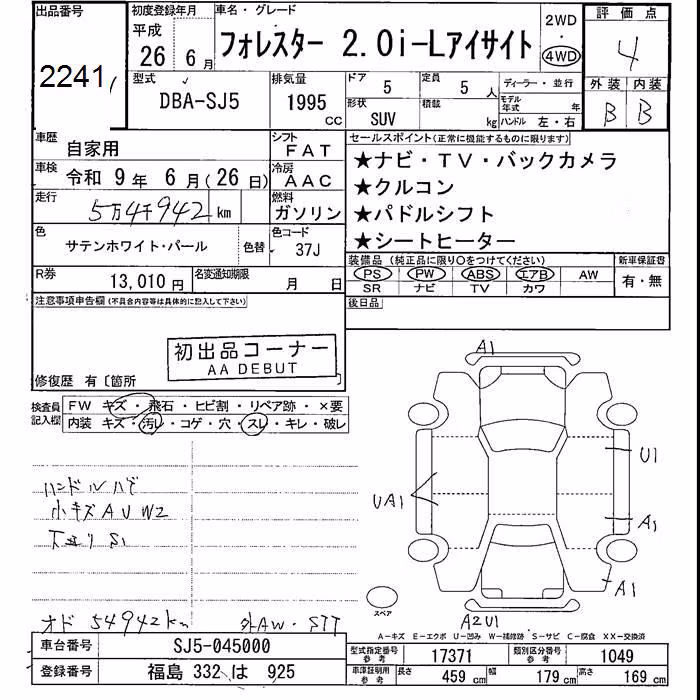 出品番号 初度登録年月 車名・グレード 2WD 評価点
平成 26年 6月 フォレスター 2.0i-Lアイサイト ・ 4WD 4
2241 型式 排気量 ドア 5 定員 5人 ディーラー・並行 外装 内装
DBA-SJ5 1995cc 形状 SUV 積載 kg モデル年式 年 B B
ハンドル 左・右
車歴 自家用 シフト FAT セールスポイント(正常に機能するものに限ります)
車検 令和 9年 6月(26日) 冷房 AAC ★ナビ・TV・バックカメラ
★クルコン
走行 5万4千942km 燃料 ガソリン ★パドルシフト
色 サテンホワイト・パール 色替 色コード 37J ★シートヒーター
装備品 (純正品に限り〇をつけてください) 新車保証書
R券 13,010円 名変通知期限 月 日 PS PW ABS エアB AW 有・無
SR ナビ TV カワ
注意事項申告欄(不具合内容等は具体的に記入して下さい) 後日品
初出品コーナー
AA DEBUT
修復歴 有〔箇所
検査員記入欄 FW キズ・飛石・ヒビ割・リペア跡・×要
内装 キズ・汚レ・コゲ・穴・スレ・キレ・破レ
A1
U1
ハンドルハゲ
UA1
小キズAUW2
A1
下廻りS1
A1
スペア
オド 54942km 外AW・STT
A2U1
A-キズ E-エクボ U-凹み W-補修跡 S-サビ C-腐食 XX-交換済
車台番号 SJ5-045000 型式指定番号 参考 17371 類別区分番号 参考 1049
登録番号 福島 332 は 925 車庫証明用 参考 長さ 459cm 幅 179cm 高さ 169cm